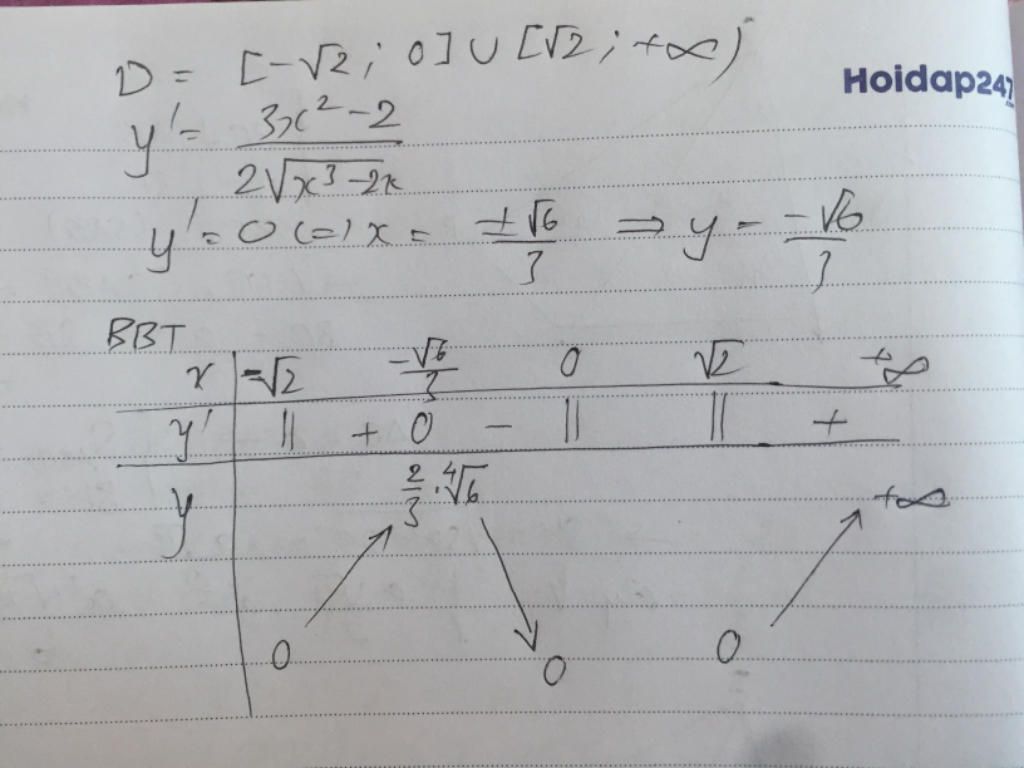 D = [-√2; 0] ∪ [√2; +∞)
Hoidap247
y' = (3x² - 2)/(2√(x³ - 2x))
y' = 0 (=) x = ±√6/3 ⇒ y = -√6/3
BBT
x | -√2 -√6/3 0 √2 +∞
y' | || + 0 - || || +
y | 2/3 . ⁴√6 +∞
0 0 0